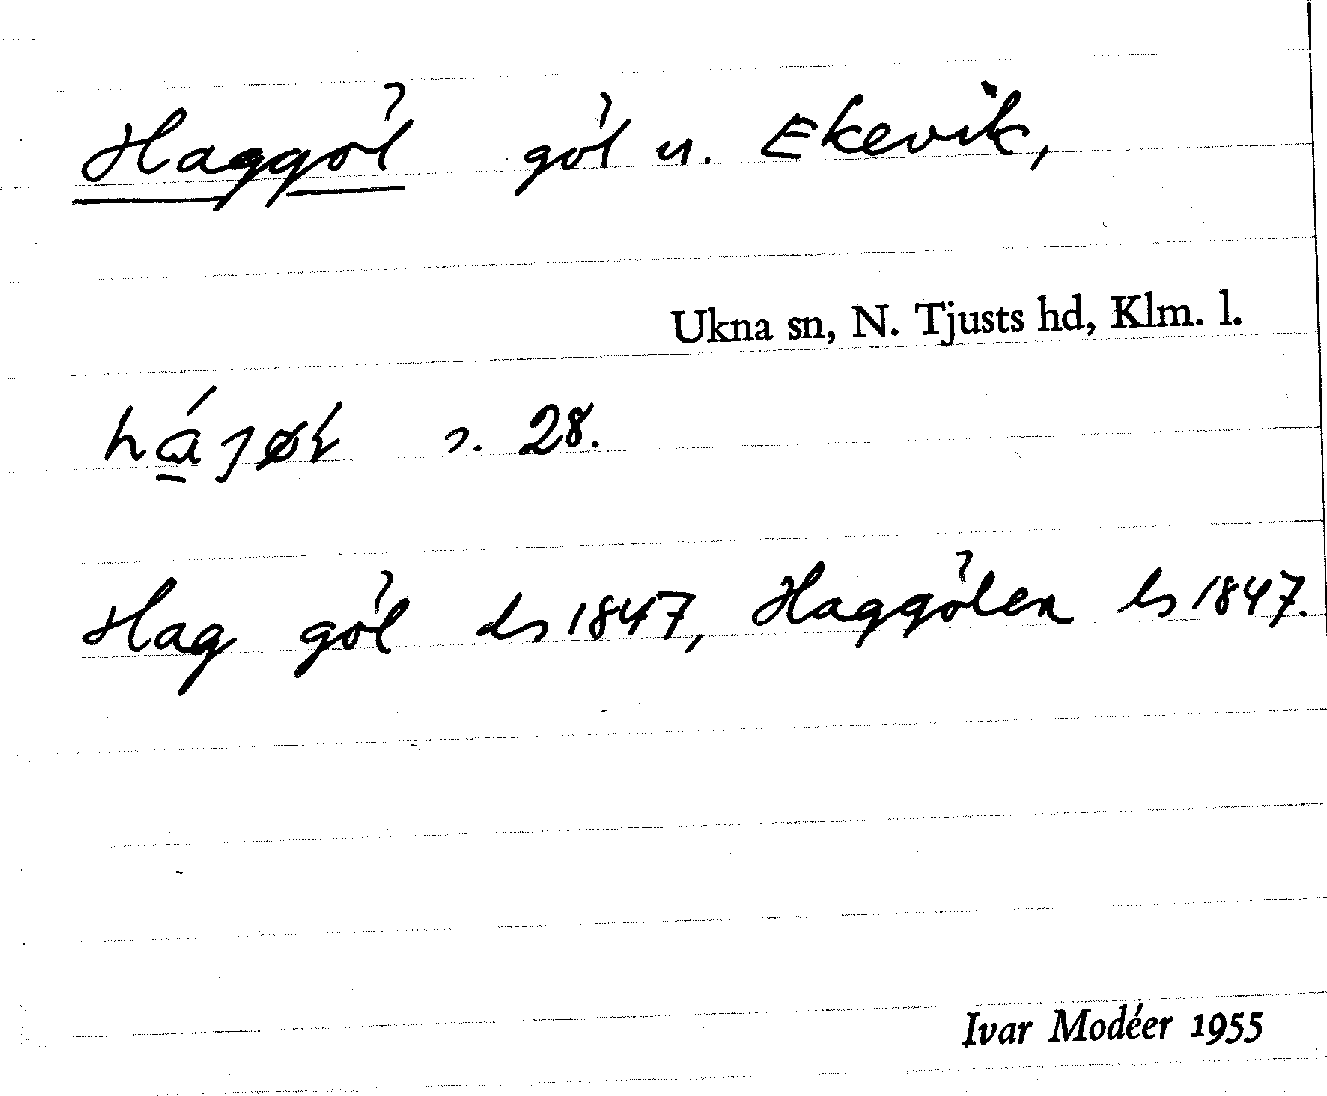 Haggöl göl u. Ekevik,
Ukna sn, N. Tjusts hd, Klm. l.
s. 28.
Hag göl ds 1847, Haggölen ls 1847.
Ivar Modéer 1955